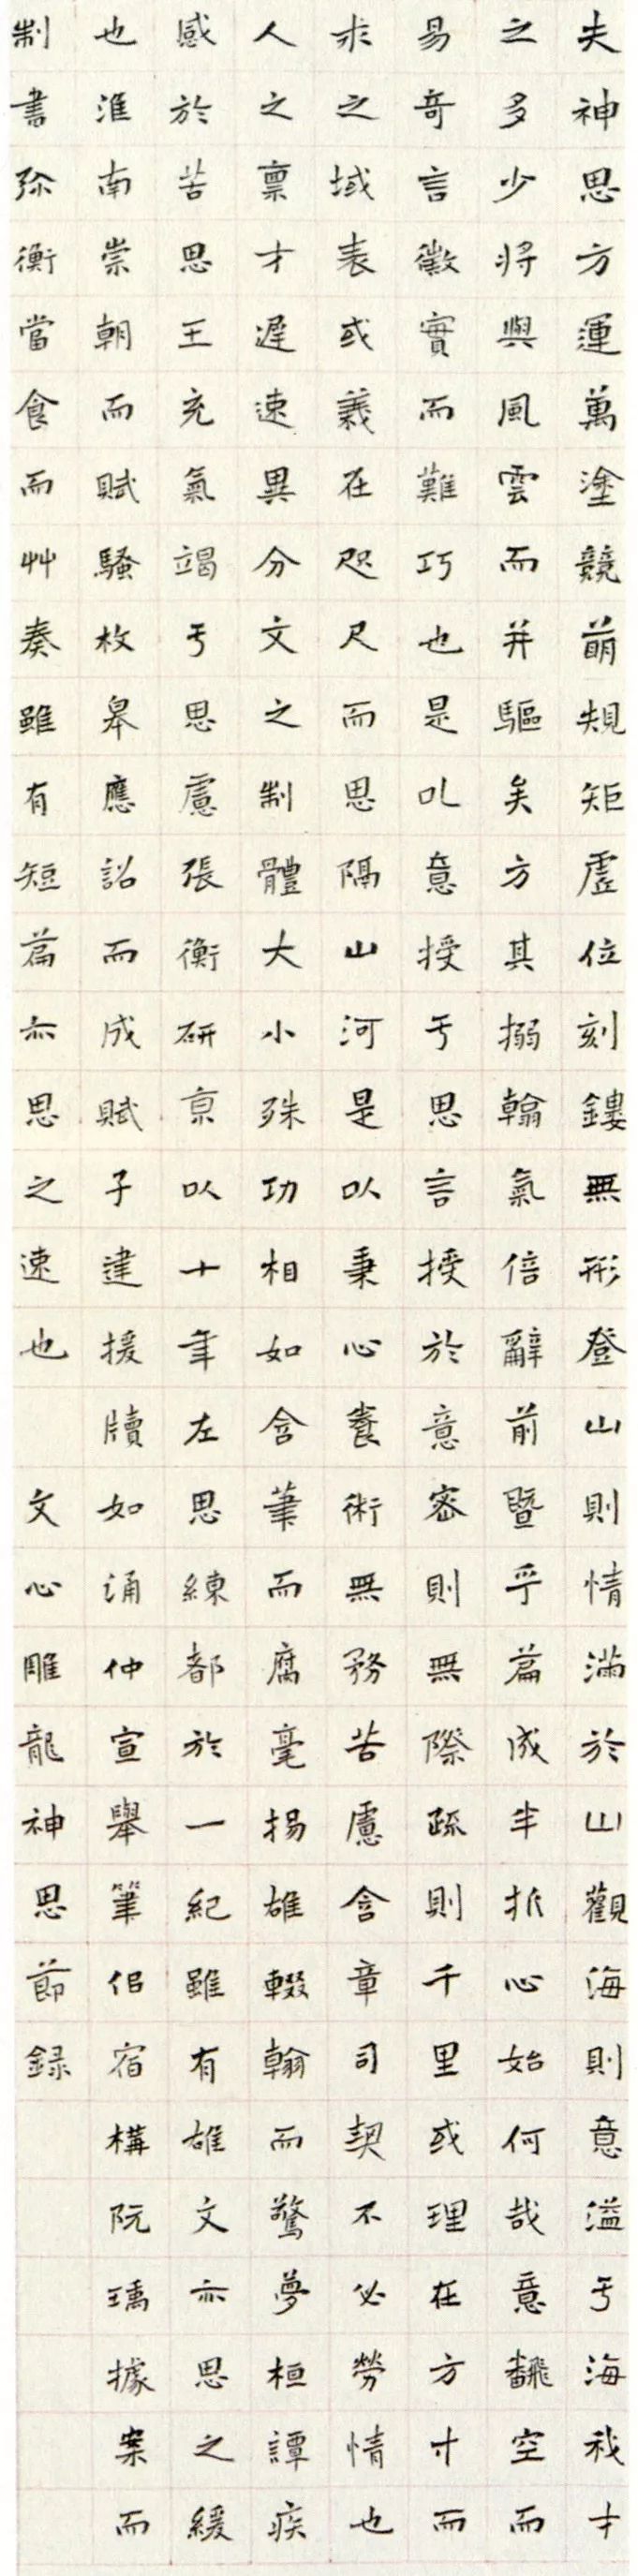 夫神思方運萬塗競萌規矩虛位刻鏤無形登山則情滿於山觀海則意溢于海我才
之多少將與風雲而并驅矣方其搦翰氣倍辭前暨乎篇成半折心始何哉意翻空而
易奇言徵實而難巧也是以意授于思言授於意密則無際疏則千里或理在方寸而
求之域表或義在咫尺而思隔山河是以秉心養術無務苦慮含章司契不必勞情也
人之禀才遲速異分文之制體大小殊功相如含筆而腐毫揚雄輟翰而驚夢桓譚疾
感於苦思王充氣竭于思慮張衡研京以十年左思練都於一紀雖有雄文亦思之緩
也淮南崇朝而賦騷枚皋應詔而成賦子建援牘如誦仲宣舉筆佀宿構阮瑀據案而
制書弥衡當食而艸奏雖有短篇亦思之速也 文心雕龍神思節録